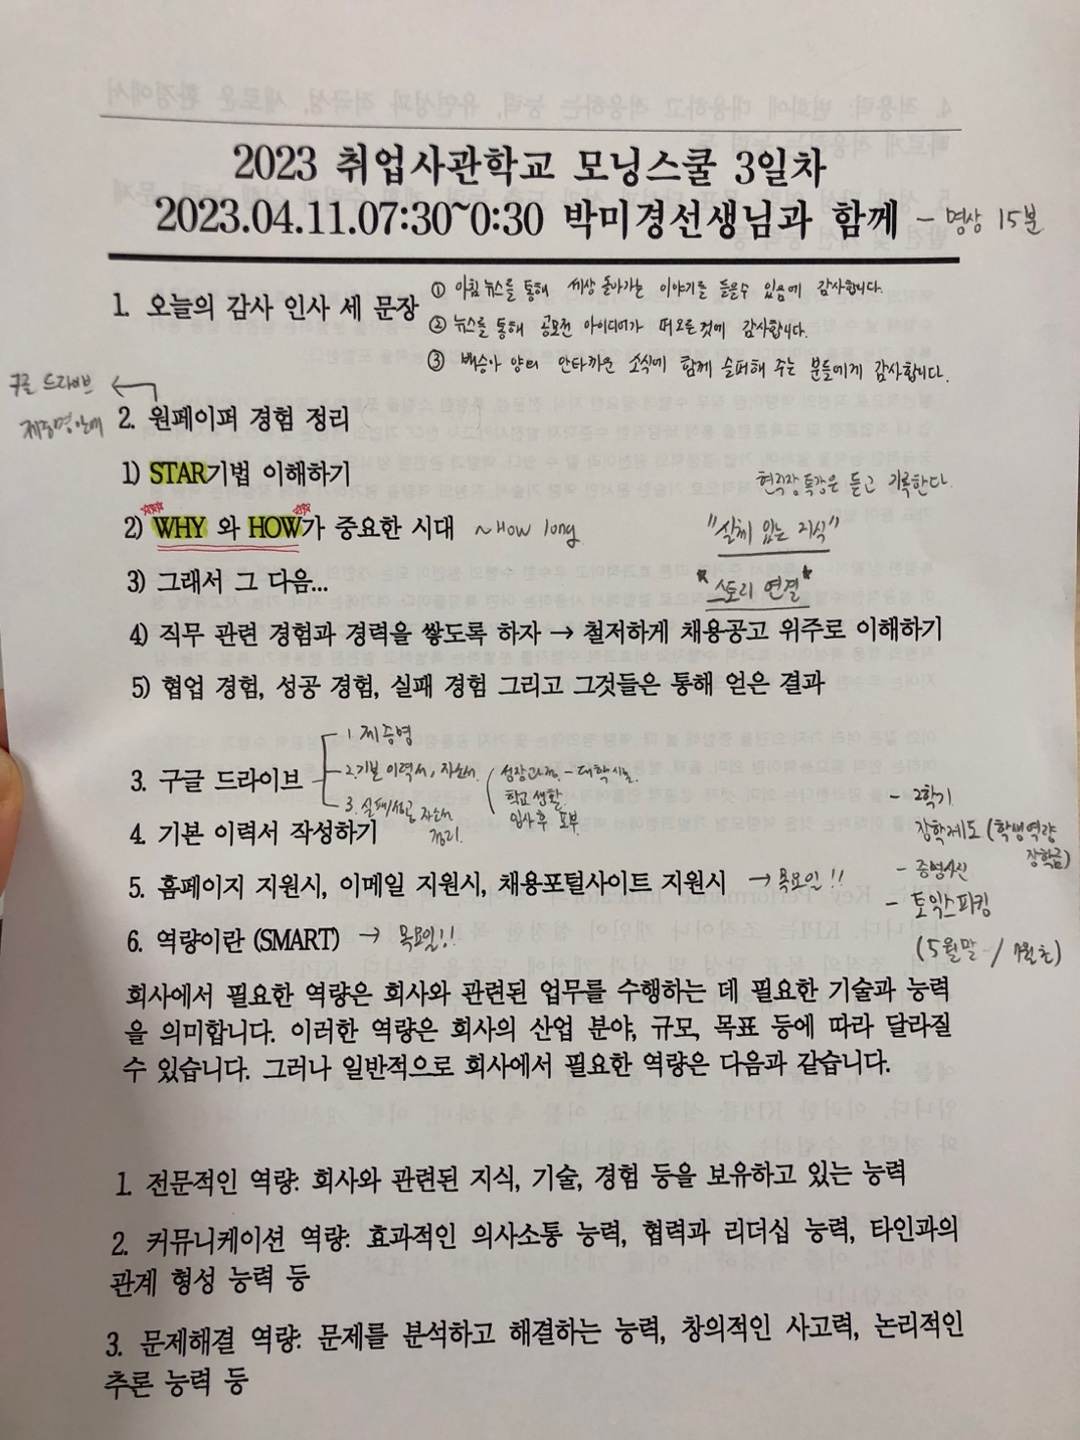 2023 취업사관학교 모닝스쿨 3일차
2023.04.11.07:30~0:30 박미경선생님과 함께 - 명상 15분
1. 오늘의 감사 인사 세 문장
① 아침 뉴스를 통해 세상 돌아가는 이야기를 들을수 있음에 감사합니다.
② 뉴스를 통해 공모전 아이디어가 떠오른것에 감사합니다.
③ 배승아 양의 안타까운 소식에 함께 슬퍼해 주는 분들에게 감사합니다.
구글 드라이브
2. 원페이퍼 경험 정리
1) STAR기법 이해하기
현직장특강은 듣고 기록한다
2) WHY 와 HOW가 중요한 시대 ~How long
"실체 있는 지식"
3) 그래서 그 다음...
*스토리 연결*
4) 직무 관련 경험과 경력을 쌓도록 하자 → 철저하게 채용공고 위주로 이해하기
5) 협업 경험, 성공 경험, 실패 경험 그리고 그것들은 통해 얻은 결과
3. 구글 드라이브
1. 제증명
2. 기본 이력서, 자소서.
3. 실패/성공 자소서
정리.
성장과정. - 대학시절.
학교생활
입사후 포부
4. 기본 이력서 작성하기
- 2학기
장학제도 (학생역량
장학금)
- 증명사진
- 토익스피킹
(5월말 / 7월초)
5. 홈페이지 지원시, 이메일 지원시, 채용포털사이트 지원시 → 목요일!!
6. 역량이란 (SMART) → 목요일!!
회사에서 필요한 역량은 회사와 관련된 업무를 수행하는 데 필요한 기술과 능력
을 의미합니다. 이러한 역량은 회사의 산업 분야, 규모, 목표 등에 따라 달라질
수 있습니다. 그러나 일반적으로 회사에서 필요한 역량은 다음과 같습니다.
1. 전문적인 역량: 회사와 관련된 지식, 기술, 경험 등을 보유하고 있는 능력
2. 커뮤니케이션 역량: 효과적인 의사소통 능력, 협력과 리더십 능력, 타인과의
관계 형성 능력 등
3. 문제해결 역량: 문제를 분석하고 해결하는 능력, 창의적인 사고력, 논리적인
추론 능력 등